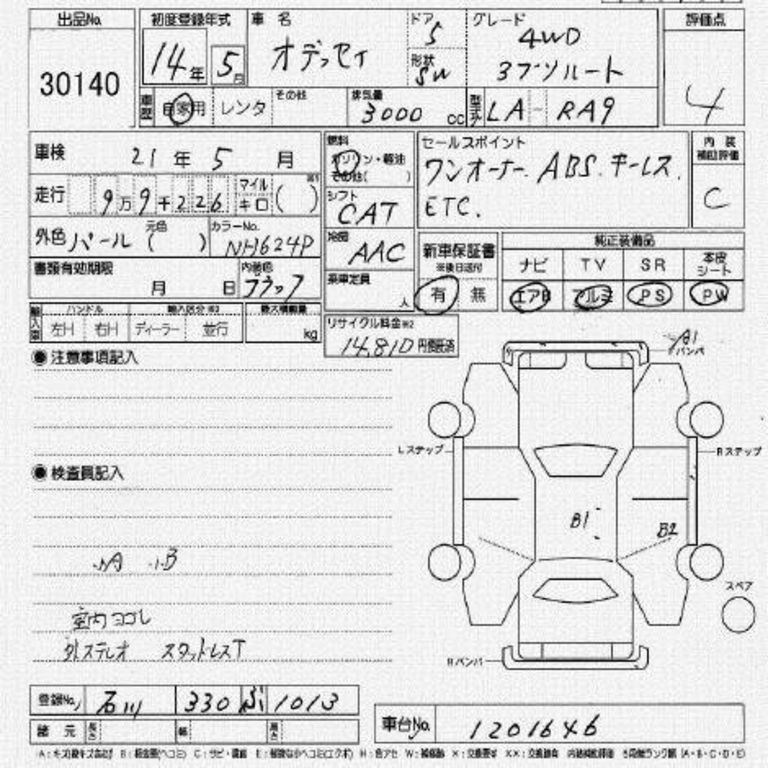 出品No. 初度登録年式 車名 ドア グレード 評価点
30140 14年 5月 オデッセイ 5 4WD 4
形状 SW 3ブソルート
車歴 自家用 レンタ その他 排気量 3000 cc 型式 LA-RA9
車検 21年 5月 燃料 ガソリン・軽油 その他( ) セールスポイント 内装補助評価
走行 9万9千226 マイル キロ ( ) シフト CAT ワンオーナー. ABS. キーレス. C
ETC.
外色 パール 元色 ( ) カラーNo. NH624P 冷房 AAC 新車保証書 純正装備品
※後日送付 ナビ TV SR 本皮シート
書類有効期限 月 日 内装色 ブラック 乗車定員 人 有 無 エアB アルミ PS PW
輸入車 ハンドル 左H 右H 輸入区分 ディーラー 並行 最大積載量 kg リサイクル料金 14,810 円預託済
◉ 注意事項記入
A1
バンパ
Lステップ Rステップ
◉ 検査員記入
B1 B2
.A .B
スペア
室内ヨゴレ
外ステレオ スタットレスT
Rバンパ
登録No. 石川 330 ぶ 1013
諸元 長さ 幅 高さ 車台No. 1201646